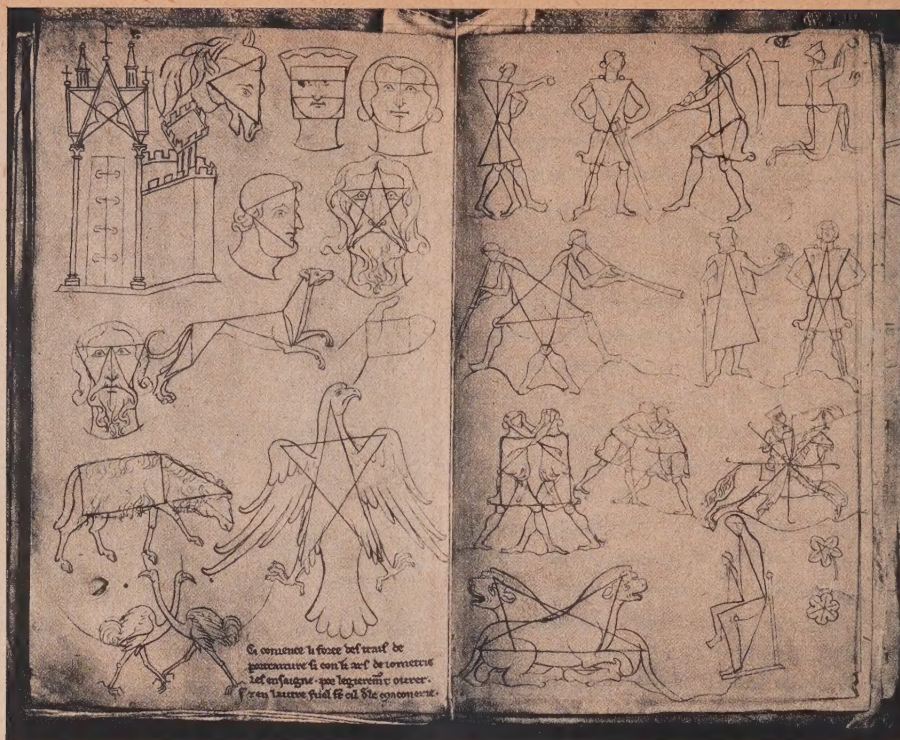 Ci comence li force des trais de
portraiture si con li ars de iometrie
les ensaigne · por legierem̄t ovrer ·
en lautre fuel sōt cil d̄le maconerie ·